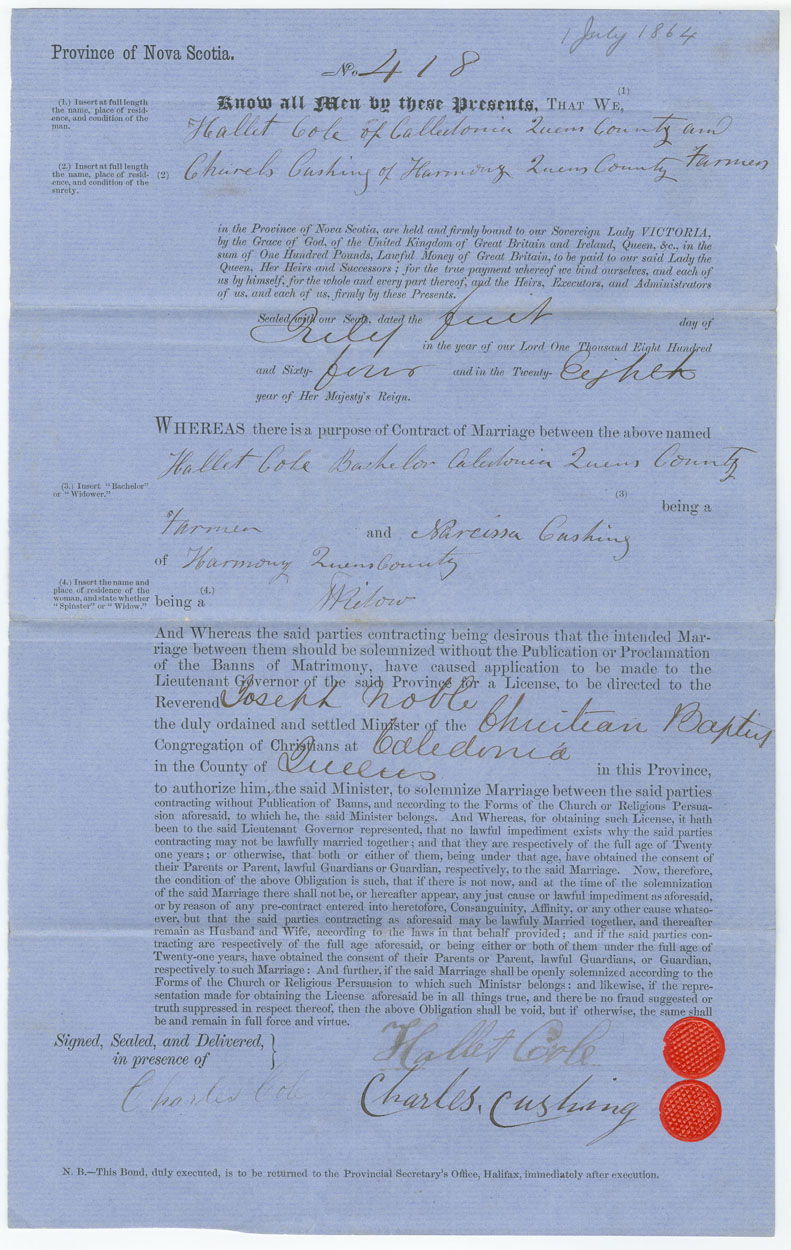 1 July 1864
Province of Nova Scotia.
No. 418
(1.) Insert at full length
the name, place of resid-
ence, and condition of the
man.
Know all Men by these Presents, THAT WE, (1)
Hallet Cole of Calledonia Quens County and
(2.) Insert at full length
the name, place of resid-
ence, and condition of the
surety.
(2) Charels Cushing of Harmony Quens County Farmers
in the Province of Nova Scotia, are held and firmly bound to our Sovereign Lady VICTORIA,
by the Grace of God, of the United Kingdom of Great Britain and Ireland, Queen, &c., in the
sum of One Hundred Pounds, Lawful Money of Great Britain, to be paid to our said Lady the
Queen, Her Heirs and Successors; for the true payment whereof we bind ourselves, and each of
us by himself, for the whole and every part thereof, and the Heirs, Executors, and Administrators
of us, and each of us, firmly by these Presents.
Sealed with our Seals, dated the first day of
July in the year of our Lord One Thousand Eight Hundred
and Sixty-four and in the Twenty-Eighth
year of Her Majesty's Reign.
WHEREAS there is a purpose of Contract of Marriage between the above named
Hallet Cole Bachelor Caledonia Quens County
(3.) Insert "Bachelor"
or "Widower."
(3)
being a
Farmer and Narcissa Cushing
of Harmony Quens County
(4.) Insert the name and
place of residence of the
woman, and state whether
"Spinster" or "Widow."
being a (4.) Widow
And Whereas the said parties contracting being desirous that the intended Mar-
riage between them should be solemnized without the Publication or Proclamation
of the Banns of Matrimony, have caused application to be made to the
Lieutenant Governor of the said Province for a License, to be directed to the
Reverend Joseph Noble
the duly ordained and settled Minister of the Christian Baptist
Congregation of Christians at Caledonia
in the County of Queens in this Province,
to authorize him, the said Minister, to solemnize Marriage between the said parties
contracting without Publication of Banns, and according to the Forms of the Church or Religious Persua-
sion aforesaid, to which he, the said Minister belongs. And Whereas, for obtaining such License, it hath
been to the said Lieutenant Governor represented, that no lawful impediment exists why the said parties
contracting may not be lawfully married together; and that they are respectively of the full age of Twenty
one years; or otherwise, that both or either of them, being under that age, have obtained the consent of
their Parents or Parent, lawful Guardians or Guardian, respectively, to the said Marriage. Now, therefore,
the condition of the above Obligation is such, that if there is not now, and at the time of the solemnization
of the said Marriage there shall not be, or hereafter appear, any just cause or lawful impediment as aforesaid,
or by reason of any pre-contract entered into heretofore, Consanguinity, Affinity, or any other cause whatso-
ever, but that the said parties contracting as aforesaid may be lawfuly Married together, and thereafter
remain as Husband and Wife, according to the laws in that behalf provided; and if the said parties con-
tracting are respectively of the full age aforesaid, or being either or both of them under the full age of
Twenty-one years, have obtained the consent of their Parents or Parent, lawful Guardians, or Guardian,
respectively to such Marriage: And further, if the said Marriage shall be openly solemnized according to the
Forms of the Church or Religious Persuasion to which such Ministsr belongs: and likewise, if the repre-
sentation made for obtaining the License aforesaid be in all things true, and there be no fraud suggested or
truth suppressed in respect thereof, then the above Obligation shall be void, but if otherwise, the same shall
be and remain in full force and virtue.
Signed, Sealed, and Delivered,
in presence of
Hallet Cole
Charles Cole
Charles. Cushing
N. B.—This Bond, duly executed, is to be returned to the Provincial Secretary's Office, Halifax, immediately after execution.